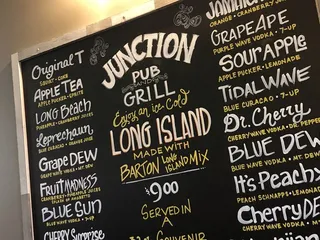 Original T
COUNT - COKE
Apple Tea
APPLE PUCKER - SPRITE
Long Beach
PINEAPPLE - CRANBERRY JUICES
Leprechaun
BLUE CURACAO - ORANGE JUICE
Grape DEW
GRAPE WAVE VODKA - MT. DEW
Fruit MADNESS
SPLASH OF AMARETTO
Blue Sun
BLUE WAVE VODKA - 7-UP
Cherry Surprise
JUNCTION
PUB
GRILL
Enjoy an ice Cold
LONG ISLAND
MADE WITH
BARTON LONG ISLAND MIX
$9.00
SERVED IN
A
SOUVENIR
JAMAICAN
ORANGE - CRANBERRY JUICES
GRAPE APE
PURPLE WAVE VODKA - 7-UP
Sour Apple
APPLE PUCKER - LEMONADE
TIDAL WAVE
BLUE CURACAO - 7-UP
Dr. Cherry
CHERRY WAVE VODKA - DR. PEPPER
BLUE DEW
BLUE WAVE VODKA - MT. DEW
It's Peachy
PEACH SCHNAPPS - LEMONADE
Cherry DEW
CHERRY WAVE VODKA - MT. DEW